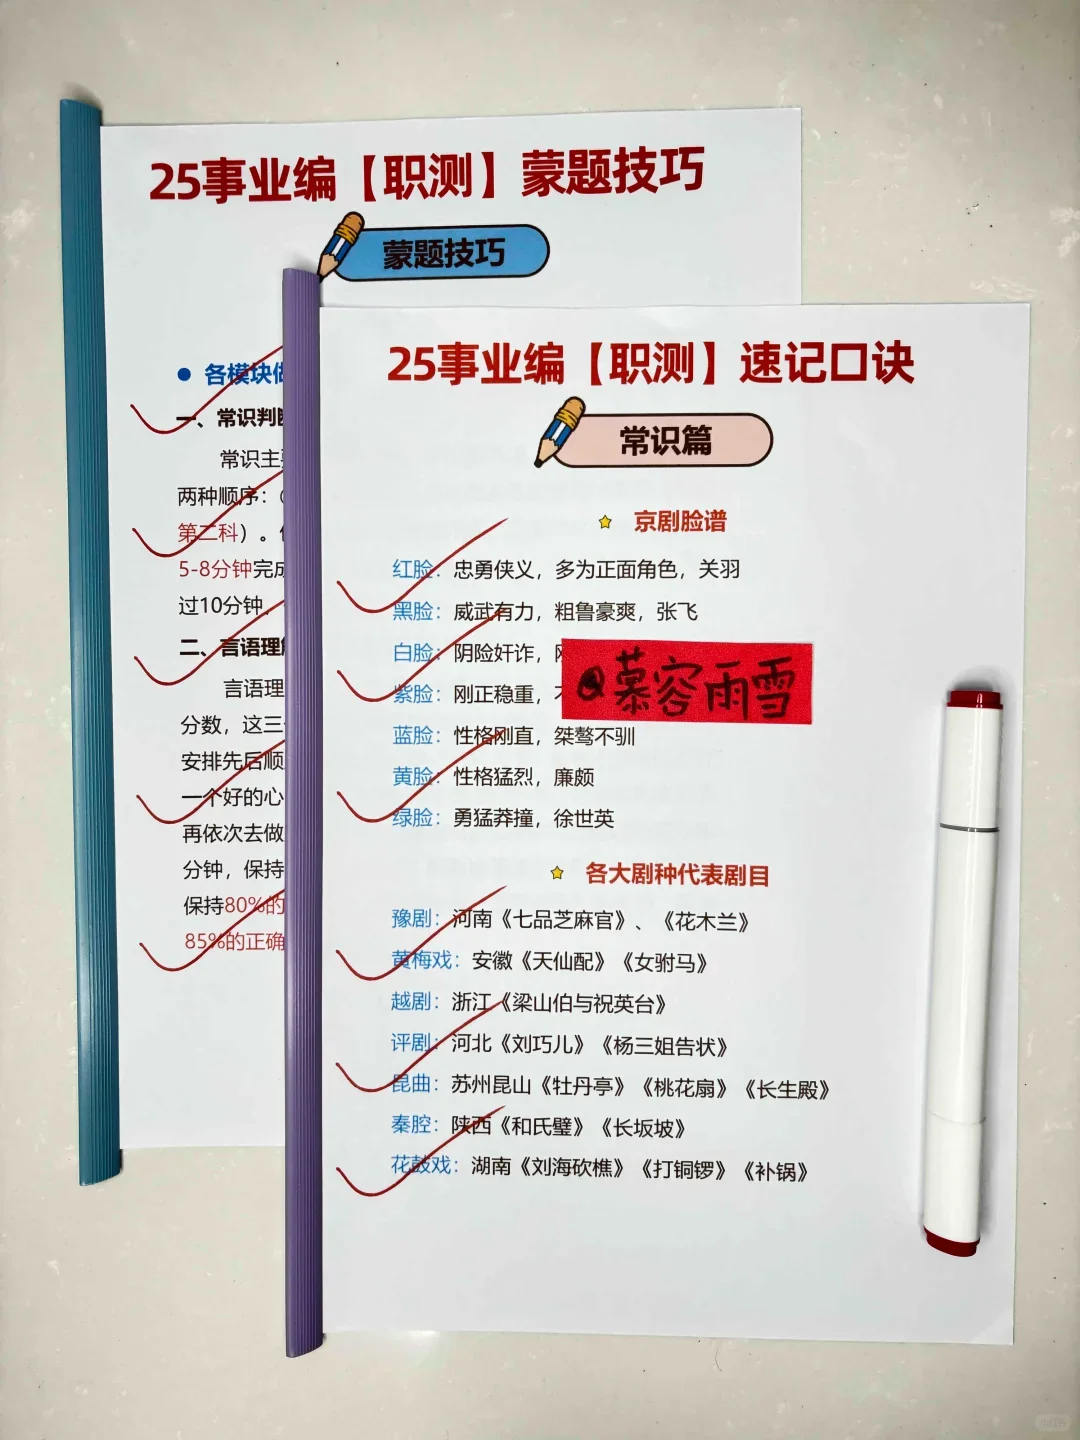 25事业编【职测】蒙题技巧
蒙题技巧
各模块做
一、常识判断
常识主要
两种顺序：
第二科）。
5-8分钟完成
过10分钟，
二、言语理解
言语理
分数，这三
安排先后顺
一个好的心
再依次去做
分钟，保持
保持80%的
85%的正确
25事业编【职测】速记口诀
常识篇
京剧脸谱
红脸：忠勇侠义，多为正面角色，关羽
黑脸：威武有力，粗鲁豪爽，张飞
白脸：阴险奸诈，
紫脸：刚正稳重，
@慕容雨雪
蓝脸：性格刚直，桀骜不驯
黄脸：性格猛烈，廉颇
绿脸：勇猛莽撞，徐世英
各大剧种代表剧目
豫剧：河南《七品芝麻官》、《花木兰》
黄梅戏：安徽《天仙配》《女驸马》
越剧：浙江《梁山伯与祝英台》
评剧：河北《刘巧儿》《杨三姐告状》
昆曲：苏州昆山《牡丹亭》《桃花扇》《长生殿》
秦腔：陕西《和氏璧》《长坂坡》
花鼓戏：湖南《刘海砍樵》《打铜锣》《补锅》